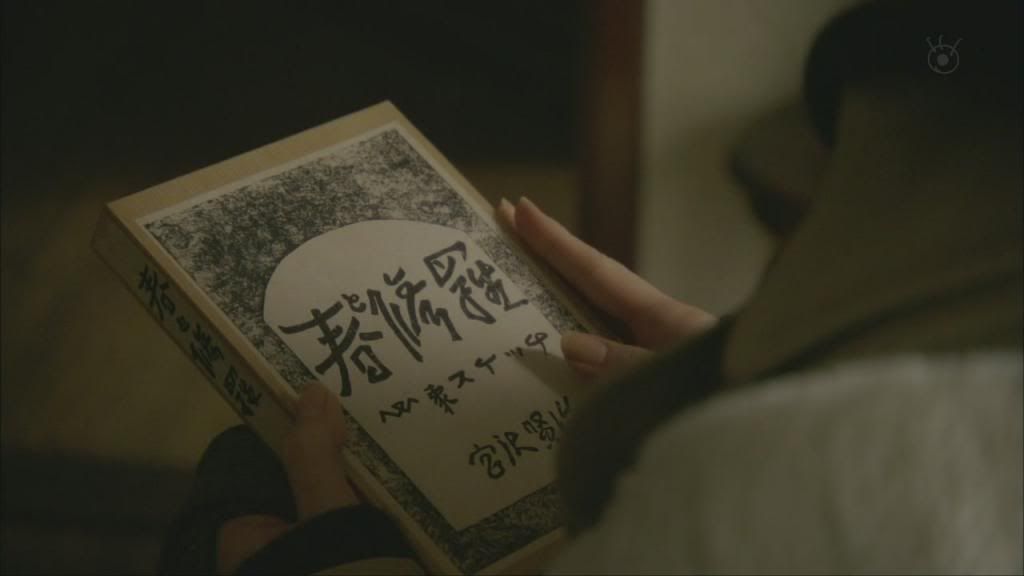 春と修羅
心象スケッチ
宮沢賢
春と修羅